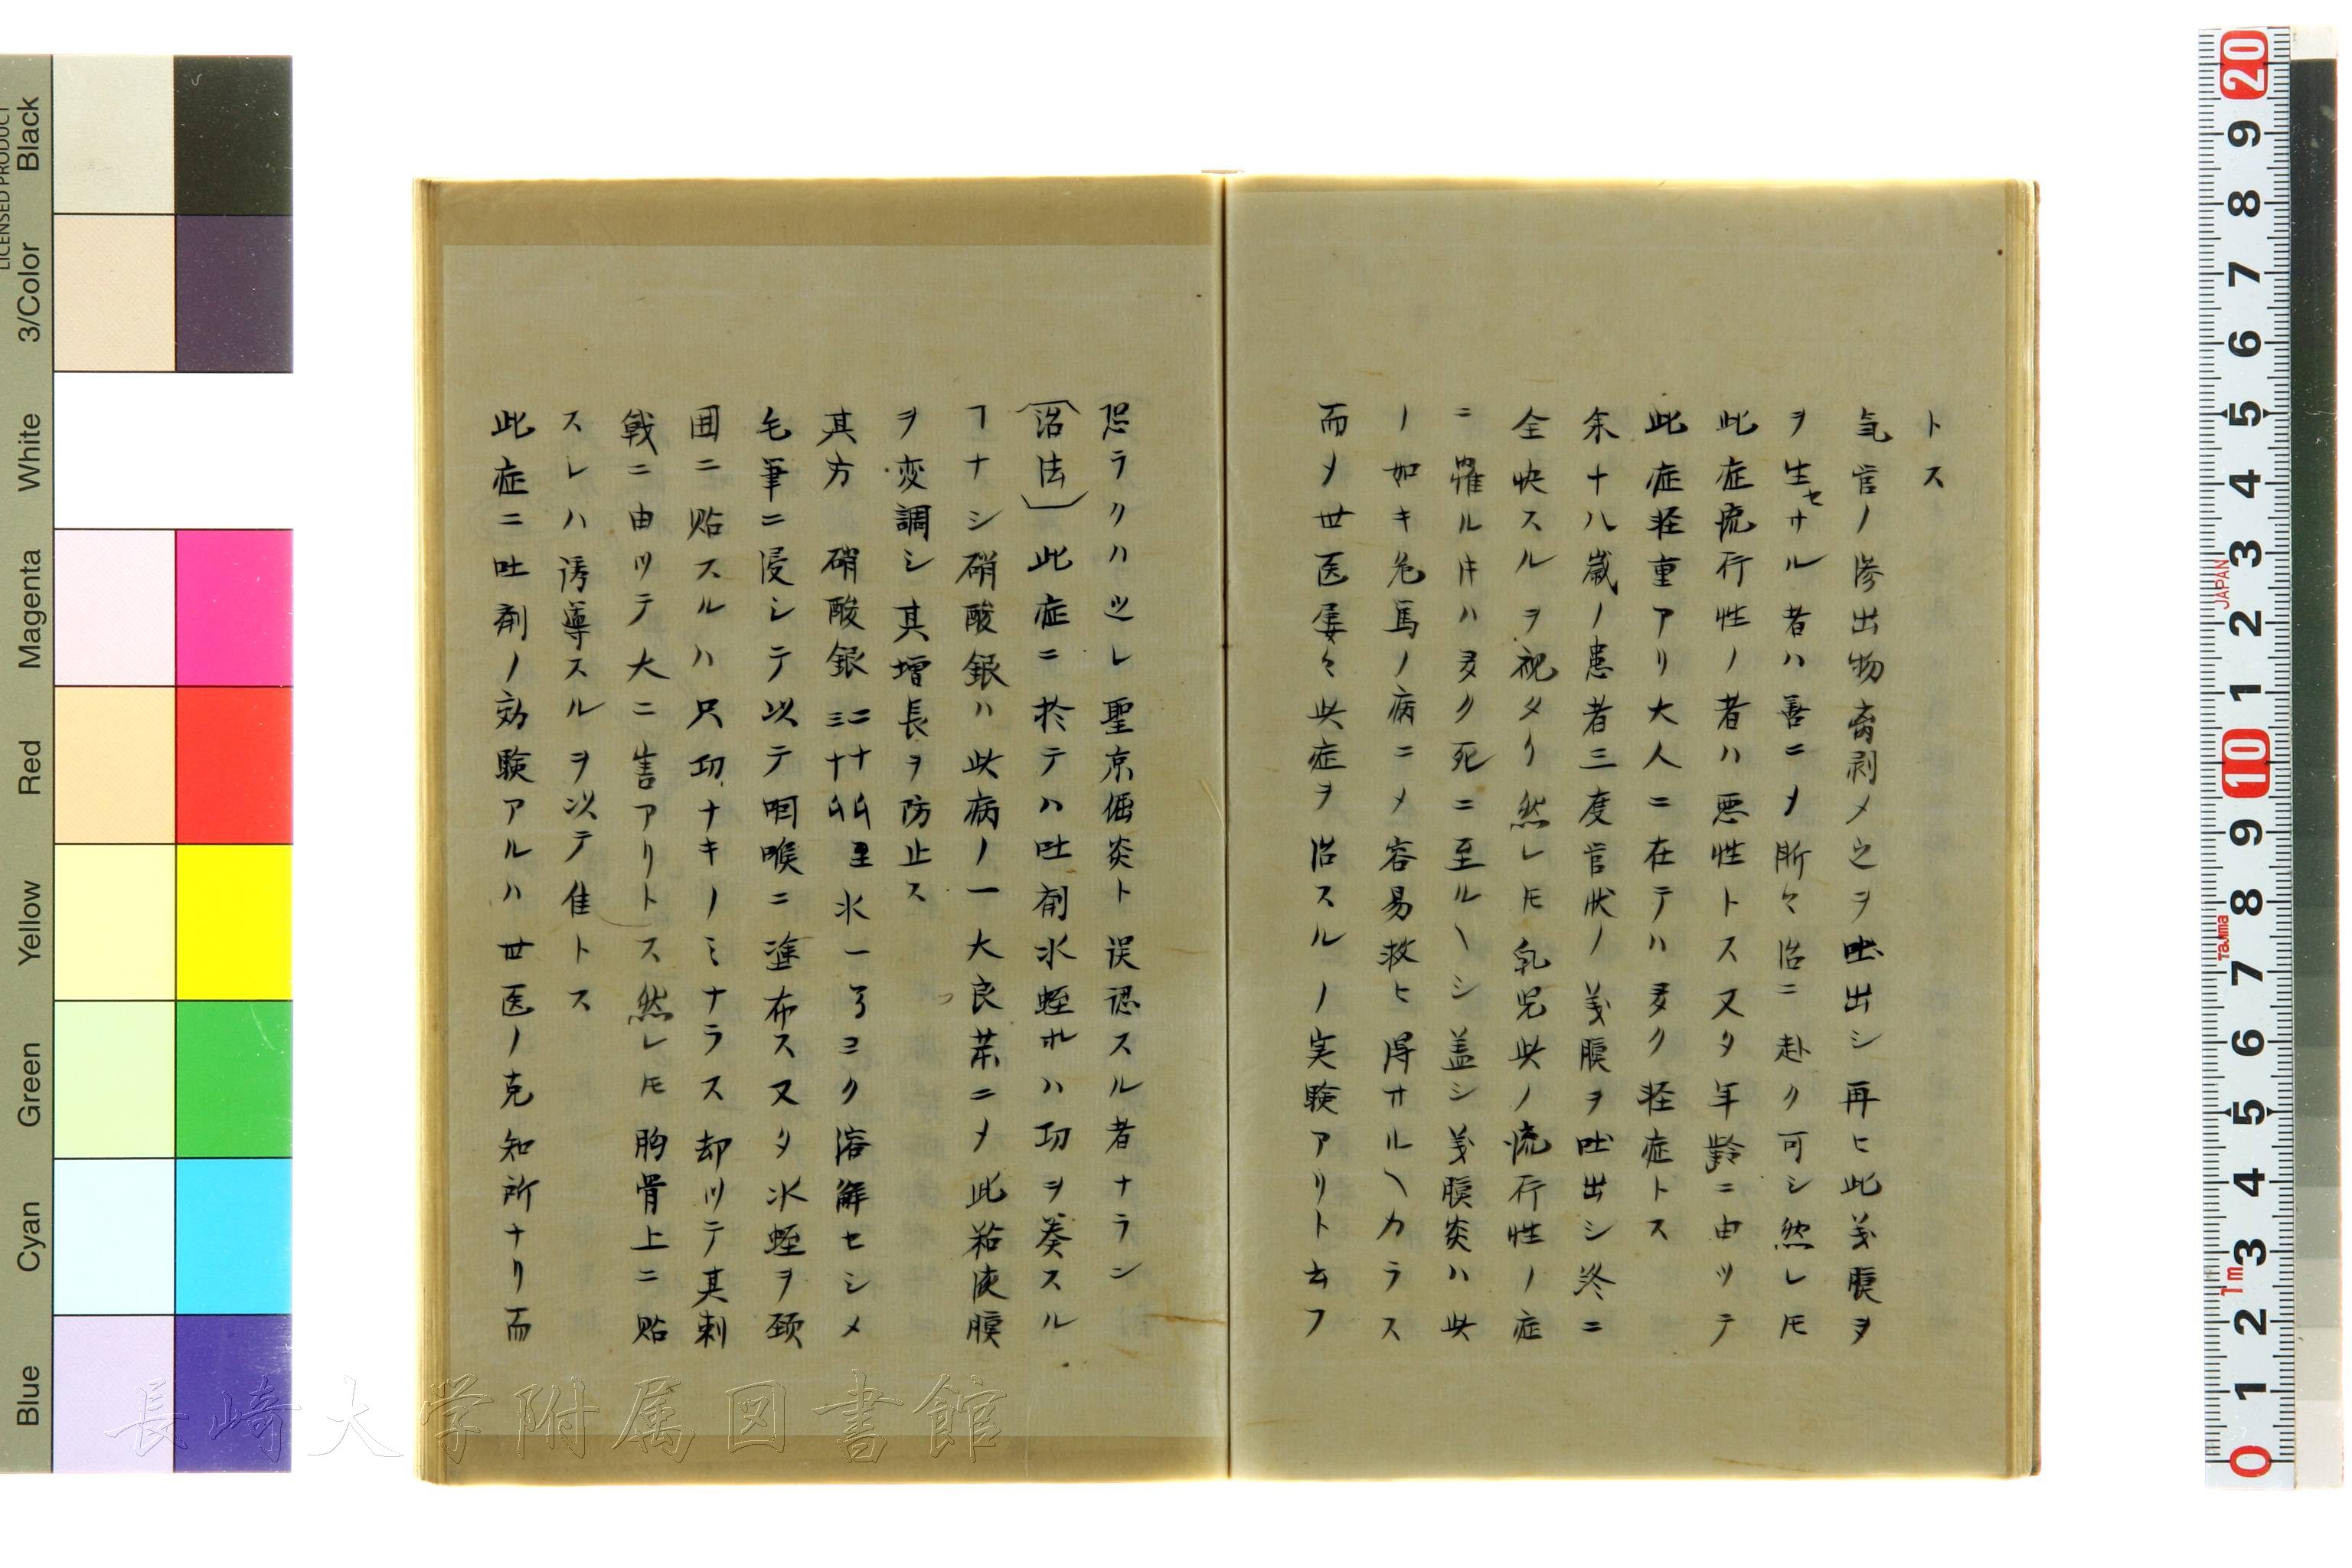 トス
気管ノ滲出物剥メ之ヲ吐出シ再ヒ此義膜ヲ
ヲ生セサル者ハ善ニメ所々治ニ赴ク可シ然レ𪜈
此症流行性ノ者ハ悪性トス又タ年齢ニ由ツテ
此症軽重アリ大人ニ在テハ多ク軽症トス
余十八歳ノ患者三度管状ノ義膜ヲ吐出シ終ニ
全快スルヲ視タリ然レ𪜈乳児此ノ流行性ノ症
ニ罹ル𪜈ハ多ク死ニ至ルヿシ盖シ義膜炎ハ此
ノ如キ危篤ノ病ニメ容易救ヒ得サルヿカラス
而メ世医屡々此症ヲ治スルノ実験アリト云フ
恐ラクハツレ聖京傴炎ト誤認スル者ナラン
(治法)此症ニ於テハ吐剤水蛭ホレハ功ヲ奏スル
ヿナシ硝酸銀ハ此病ノ一大良薬ニメ此粘液膜
ヲ変調シ其増長ヲ防止ス
其方 硝酸銀 水一 溶解セシメ
毛筆ニ浸シテ以テ咽喉ニ塗布ス又タ水蛭ヲ頚
囲ニ貼スルハ只功ナキノミナラス却ツテ其刺
戟ニ由ツテ大ニ害アリトス然レ𪜈胸骨上ニ貼
スレハ誘導スルヲ以テ佳トス
此症ニ吐剤ノ効験アルハ世医ノ克知所ナリ而
長崎大学附属図書館
LICENSED PRODUCT
Black
3/Color
White
Magenta
Red
Yellow
Green
Cyan
Blue
20
9
8
7
6
5
4
3
2
1
10
9
8
7
6
5
4
3
2
1
0
JAPAN
Tajima
1m